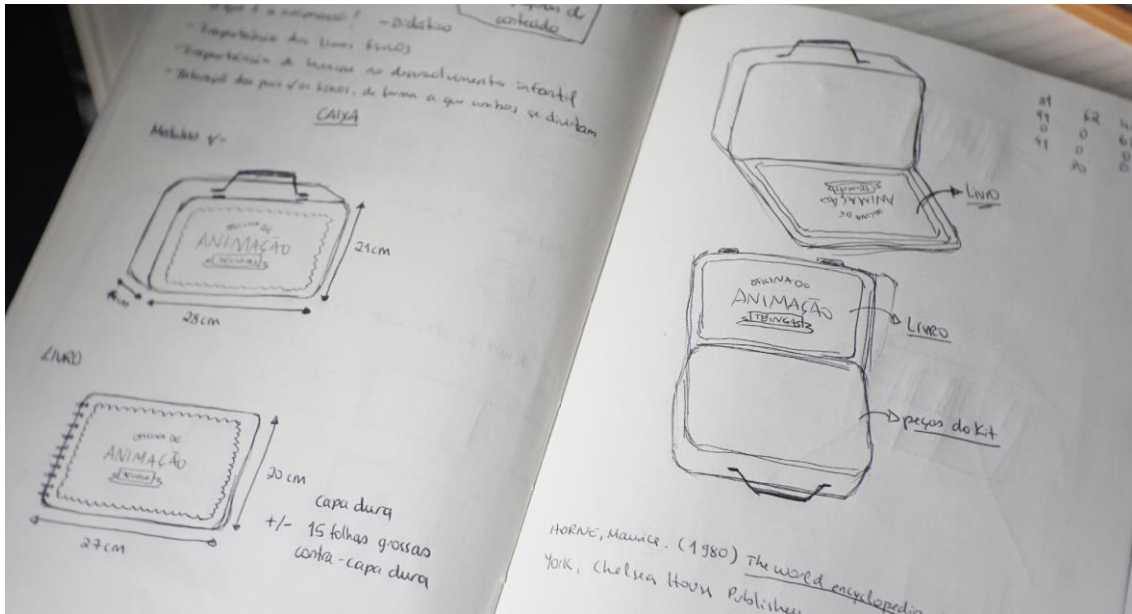 - Didático
conteúdo
- Importância dos livros físicos
- Importância de brincar no desenvolvimento infantil
de forma a que ambos se divirtam
CAIXA
OFICINA DE
ANIMAÇÃO
21cm
28cm
LIVRO
OFICINA DE
ANIMAÇÃO
20 cm
27cm
capa dura
+/- 15 folhas grossas
contra-capa dura
OFICINA DE
ANIMAÇÃO
LIVRO
OFICINA DE
ANIMAÇÃO
LIVRO
peças do Kit
HORNE, Maurice. (1980) The world encyclopedia
York, Chelsea House Publishers